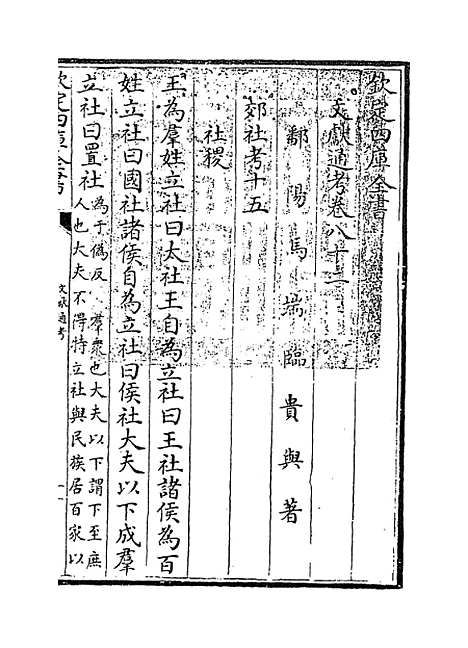 欽定四庫全書
文獻通考卷八十二
鄱陽馬端臨貴與著
郊社考十五
社稷
王為羣姓立社曰大社王自為立社曰王社諸侯為百
姓立社曰國社諸侯自為立社曰侯社大夫以下成羣
立社曰置社
為于偽反 羣衆也大夫以下謂下至庶
人也大夫不得特立社與民族居百家以
欽定四庫全書
文獻通考
一